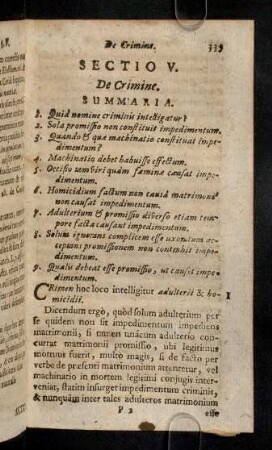 De Crimine. 339
SECTIO V.
De Crimine.
SUMMARIA.
1. Quid nomine criminis intelligatur?
2. Sola promissio non constituit impedimentum.
3. Quando & quæ machinatio constituat impe-
dimentum?
4. Machinatio debet habuisse effectum.
5. Occisio unius viri quàm fœminæ causat impe-
dimentum.
6. Homicidium factum non causâ matrimonii
non causat impedimentum.
7. Adulterium & promissio diverso etiam tem-
pore facta causant impedimentum.
8. Solum ignorans complicem esse uxoratum ac-
ceptans promissionem non contrahit impe-
dimentum.
9. Qualis debeat esse promissio, ut causet impe-
dimentum.
CRimen hoc loco intelligitur adulterii & ho- 1
micidii.
Dicendum ergò, quòd solum adulterium per
se quidem non sit impedimentum impediens
matrimonii, si autem unacum adulterio con-
currat matrimonii promissio, ubi legitimus
mortuus fuerit, multo magis, si de facto per
verbe de præsenti matrimonium attentetur, vel
machinatio in mortem legitimi conjugis interve-
niat, statim insurget impedimentum criminis,
& nunquàm inter tales adulteros matrimonium
P 2 esse